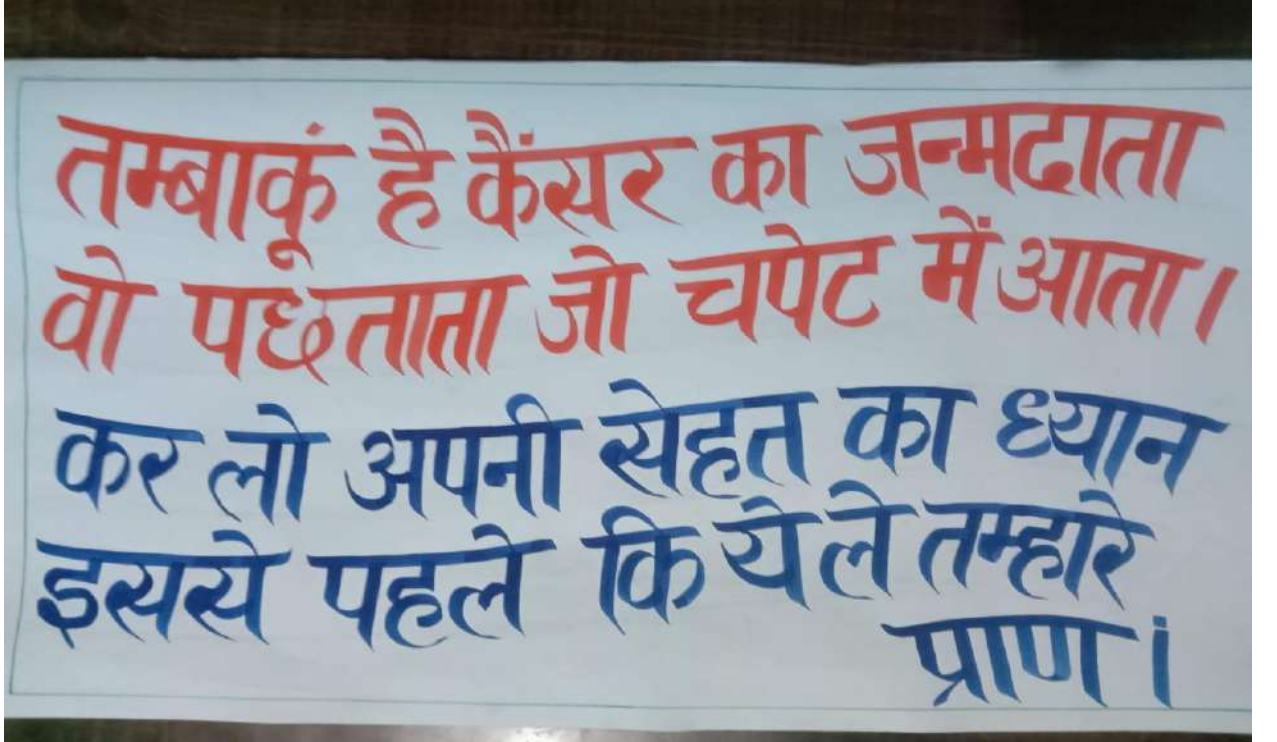 तम्बाकूं है कैंसर का जन्मदाता
वो पछताता जो चपेट में आता।
कर लो अपनी सेहत का ध्यान
इससे पहले कि ये ले तम्हारे
प्राण।